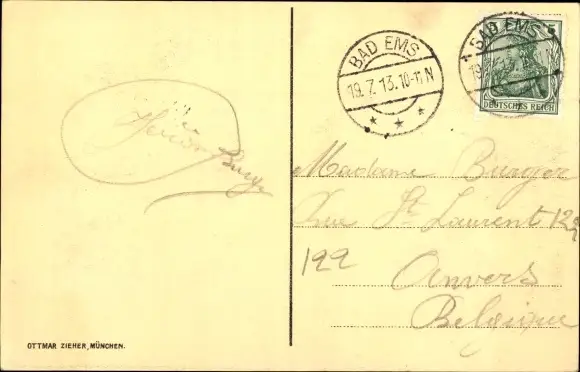 BAD EMS
19.7.13.10-11 N
* * *
BAD EMS
19.7.13
5
DEUTSCHES REICH
Madame Burger
Rue St Laurent 122
122
Anvers
Belgique
Burger
OTTMAR ZIEHER, MÜNCHEN.